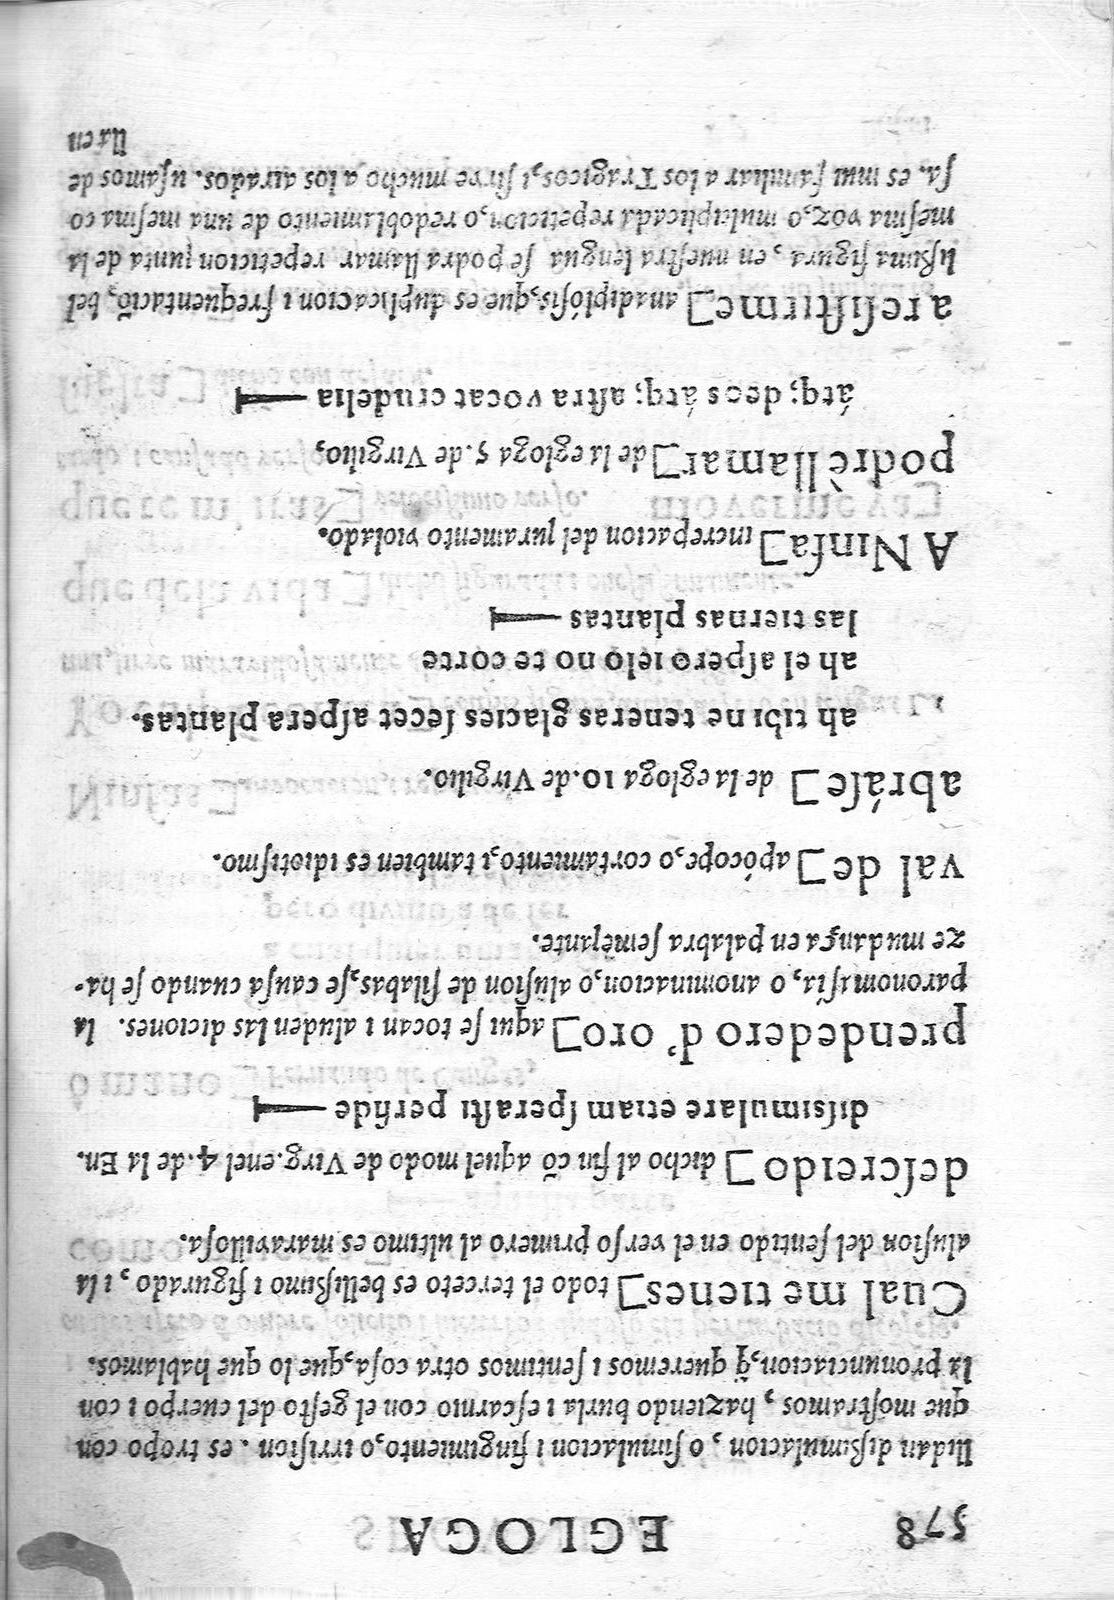 578 EGLOGA
llidan dißimulacion, o simulacion i fingimiento, o irrision. es tropo con
que mostramos, haziendo burla i escarnio con el gesto del cuerpo i con
la pronunciacion, q̃ queremos i sentimos otra cosa, que lo que hablamos.
Cual me tienes] todo el terceto es bellißimo i figurado, i la
alusion del sentido en el verso primero al ultimo es maravillosa.
descreido] dicho al fin cõ aquel modo de Virg. enel 4. de la En.
dissimulare etiam sperasti perfide
prendedero d' oro] aqui se tocan i aluden las diciones. la
paronomasía, o anominacion, o alusion de silabas, se causa cuando se ha-
ze mudança en palabra semejante.
val de] apócope, o cortamiento, i tambien es idiotismo.
abráse] de la egloga 10. de Virgilio.
ah tibi ne teneras glacies secet aspera plantas.
ah el aspero ielo no te corte
las tiernas plantas
A Ninfa] increpacion del juramento violado.
podrè llamar] de la egloga 5. de Virgilio,
átq; deos átq; astra vocat crudelia
a resistirme] anadiplósis, que es duplicacion i frequentaciõ, bel
lißima figura, en nuestra lengua se podra llamar repeticion junta de la
mesma voz, o multiplicada repeticion, o redoblamiento de una mesma co
sa. es mui familiar a los Tragicos, i sirve mucho a los airados. usamos de